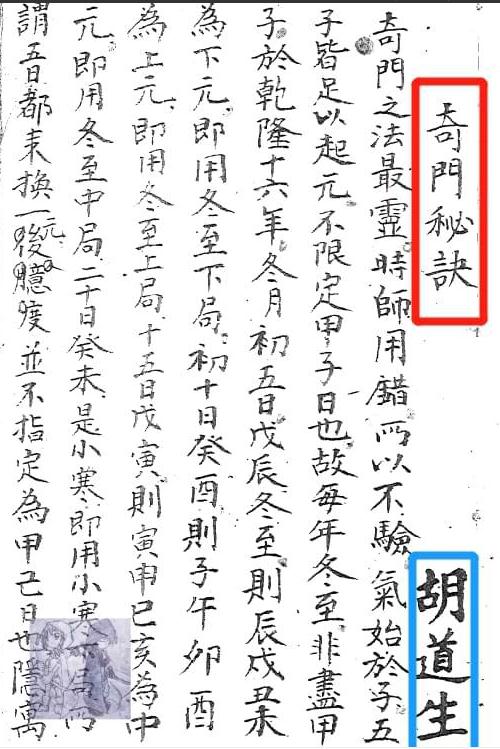 奇門秘訣
胡道生
奇門之法最靈時師用錯所以不驗氣始於子五
子皆足以起元不限定甲子日也故每年冬至非盡甲
子於乾隆十六年冬月初五日戊辰冬至則辰戌丑未
為下元即用冬至下局初十日癸酉則子午卯酉
為上元即用冬至上局十五日戊寅則寅申巳亥為中
元即用冬至中局二十日癸未是小寒即用小寒局所
謂五日都来換一元後臆度並不指定為甲己日也隱寓